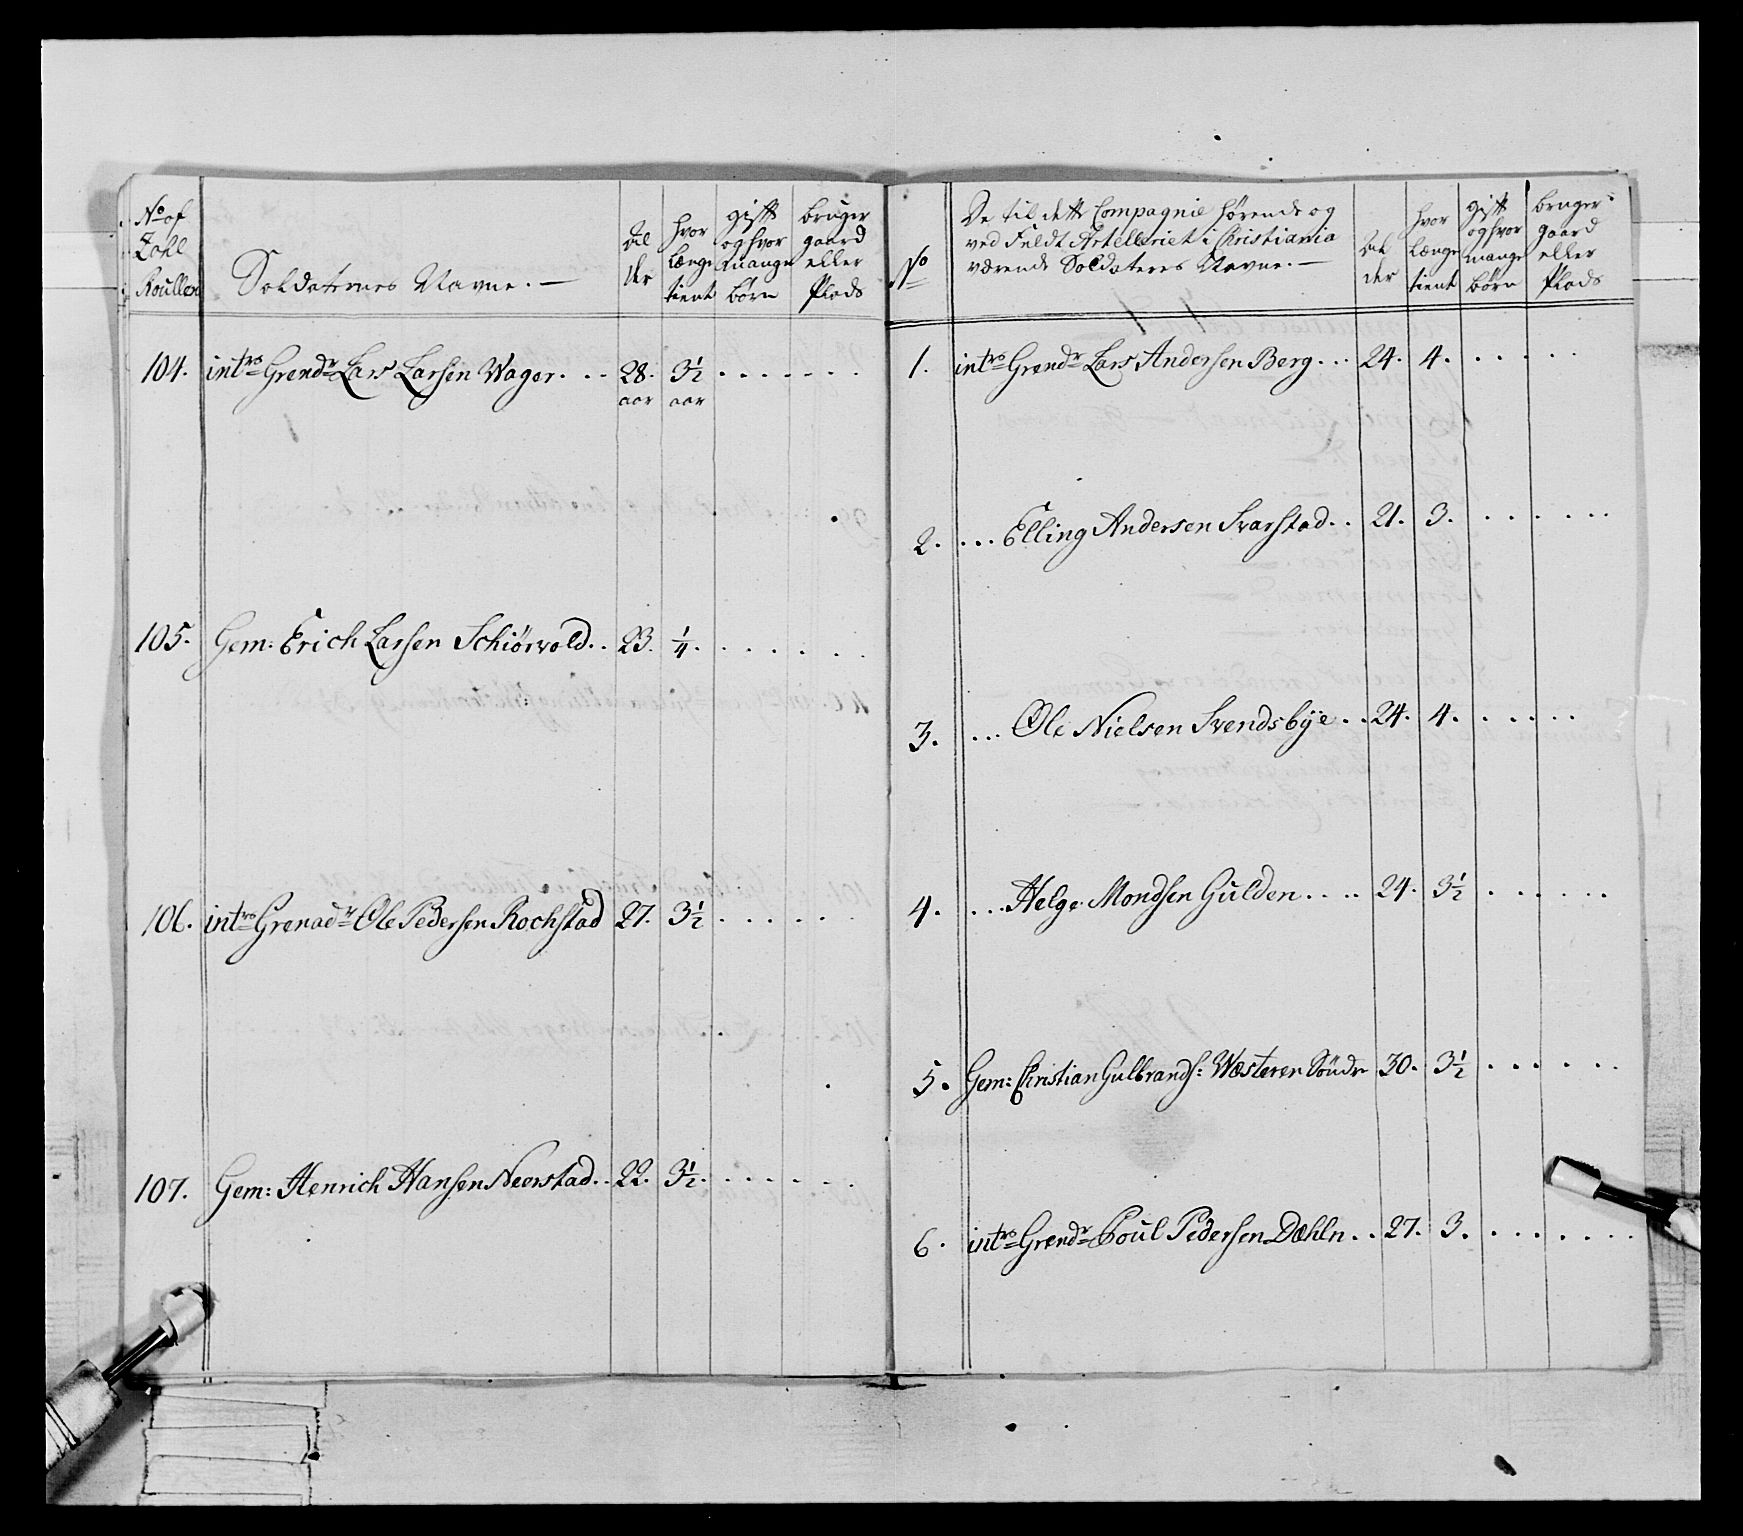 No af Zahl Roullen | Soldaternes Navne. — | Al der | hvor længe tient | gift og hvor mange børn | bruger gaard eller Plads
104. intro Grendr Lars Larsen Wager. . . 28. aar 3½ aar . . . . . . .
105. Gem: Erich Larsen Schiørvold. . 23. ¼. . . . . . .
106. intro Grenadr Ole Pedersen Rochstad 27. 3½ . . . . . .
107. Gem: Henrich Hansen Neerstad. . 22. 3½. . . . . . .
No | De til dette Compagnie hørende og
ved Feldt Artelleriet i Christiania
værende Soldaters Navne. — | Al der | hvor længe tient | gift og hvor mange børn | bruger gaard eller Plads
1. intro Grendr Lars Andersen Berg. . . 24. 4. . . . . .
2. . . . Elling Andersen Svarstad. . 21. 3. . . . . . .
3. . . . Ole Nielsen Svendsbye. . . 24. 4. . . . . .
4. . . . Helge Mondsen Gulden. . . . 24. 3½ . . . . . .
5. Gem: Christian Gulbrands: Wæsteren Søndr 30. 3½ . . . . . .
6. intro Grendr Poul Pedersen Dæhln. . 27. 3. . . . . . .